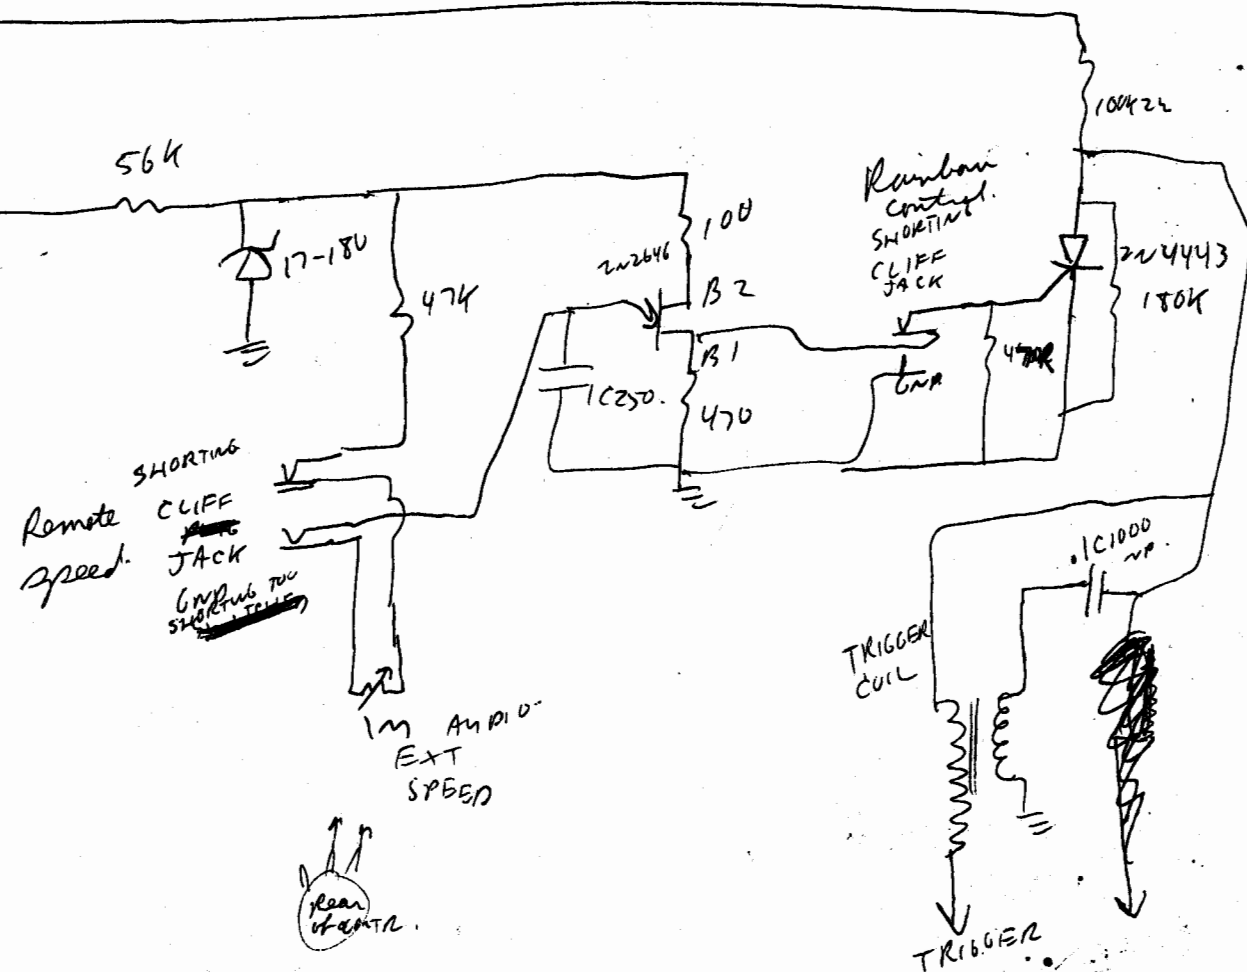 56K
17-180
47K
100
2N2646
B2
B1
1C250.
470
Rainbow
control.
SHORTING
CLIFF
JACK
GND
100K2W
2N4443
180K
SHORTING
Remote CLIFF
speed. JACK
GND
SHORTING TOO
1M AUDIO
EXT
SPEED
Rear
of CONTR.
.1C1000
NP.
TRIGGER
COIL
TRIGGER